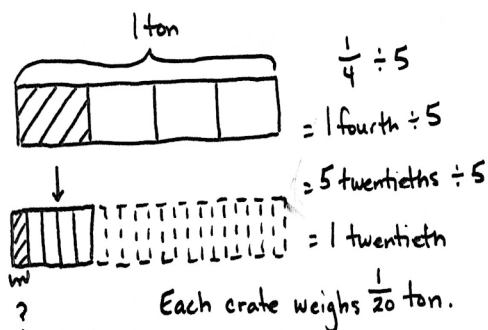 1 ton
1/4 ÷ 5
= 1 fourth ÷ 5
= 5 twentieths ÷ 5
= 1 twentieth
?
Each crate weighs 1/20 ton.